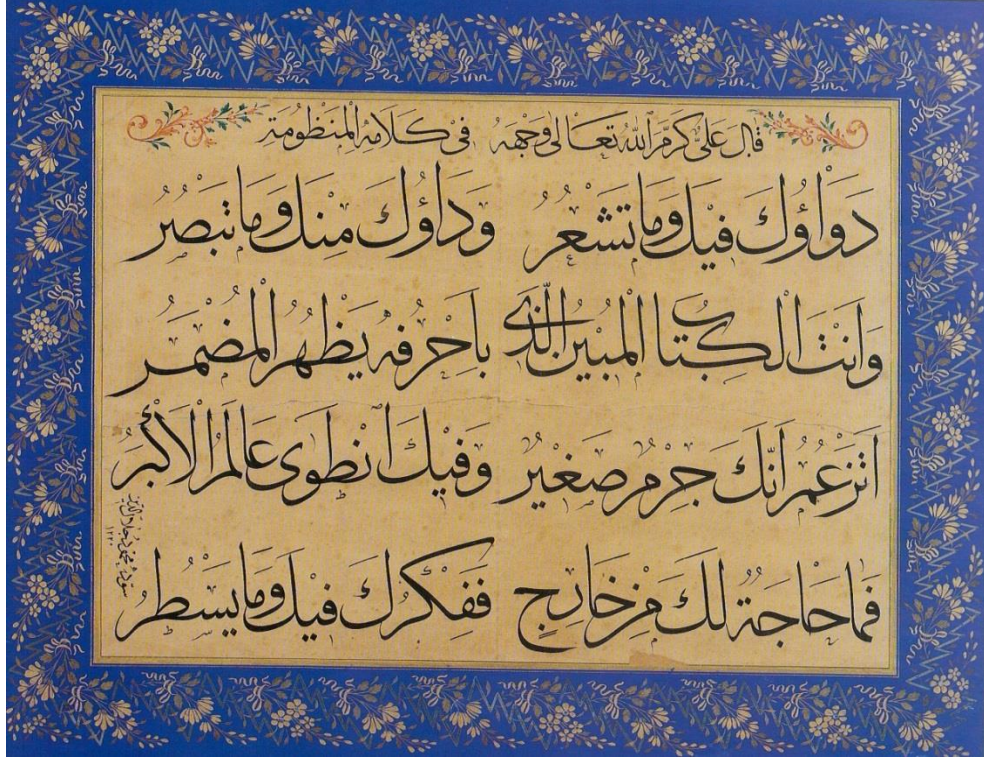 قَالَ عَلِىٌّ كَرَّمَ اللّٰهُ تَعَالٰى وَجْهَهُ فِى كَلَامِهِ الْمَنْظُومَةِ
دَوَاؤُكَ فِيكَ وَمَا تَشْعُرُ وَدَاؤُكَ مِنْكَ وَمَا تَبْصُرُ
وَاَنْتَ الْكِتَابُ الْمُبِينُ الَّذِى بِاَحْرُفِهِ يَظْهَرُ الْمُضْمَرُ
اَتَزْعُمُ اَنَّكَ جِرْمٌ صَغِيرٌ وَفِيكَ انْطَوٰى عَالَمُ الْاَكْبَرُ
فَمَا حَاجَةٌ لَكَ مِنْ خَارِجٍ فَفِكْرُكَ فِيكَ وَمَا يَسْطُرُ
سوّده محمود جلال الدين